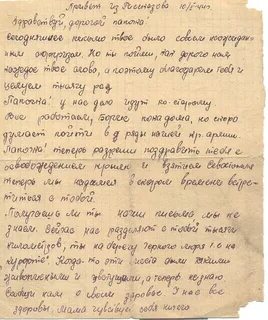 Привет из 10/V-44г.
Здравствуй, дорогой папочка!
Сегодняшнее письмо твое было совсем неожидан-
ным сюрпризом. Но ты пойми, как дорого нам
каждое твое слово, а поэтому благодарю тебя и
целуем тысячу раз
Папочка! у нас дела идут по-старому
Все работаем, Борис пока дома, но скоро
думает пойти в ряды нашей кр. армии.
Папочка! теперь разреши поздравить тебя с
освобождением крыма и взятием Севастополя
теперь мы надеемся в скором времени встре-
титься с тобой.
Получаешь ли ты наши письма, мы не
знаем. Сейчас нас разделяют с тобой тысячи
километров, ты на берегу Черного моря т.е. на
курорте. Когда-то эти места были такими
живописными и цветущими, а теперь не знаю
нам о своем здоровье. У нас все
здоровы, мама чувствует себя ничего